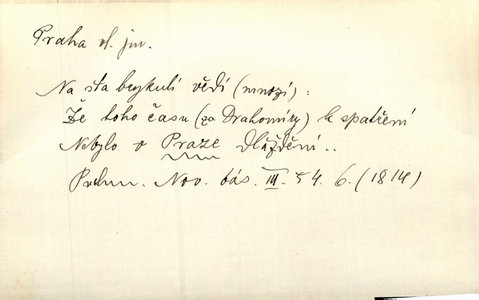 Praha vl. jm.
Na sta brejkulí vědí (mnozí):
Že toho času (za Drahomíry) k spatření
Nebylo v Praze Dláždění..
Puchm. Nov. bás. III. 54. 6. (1814)